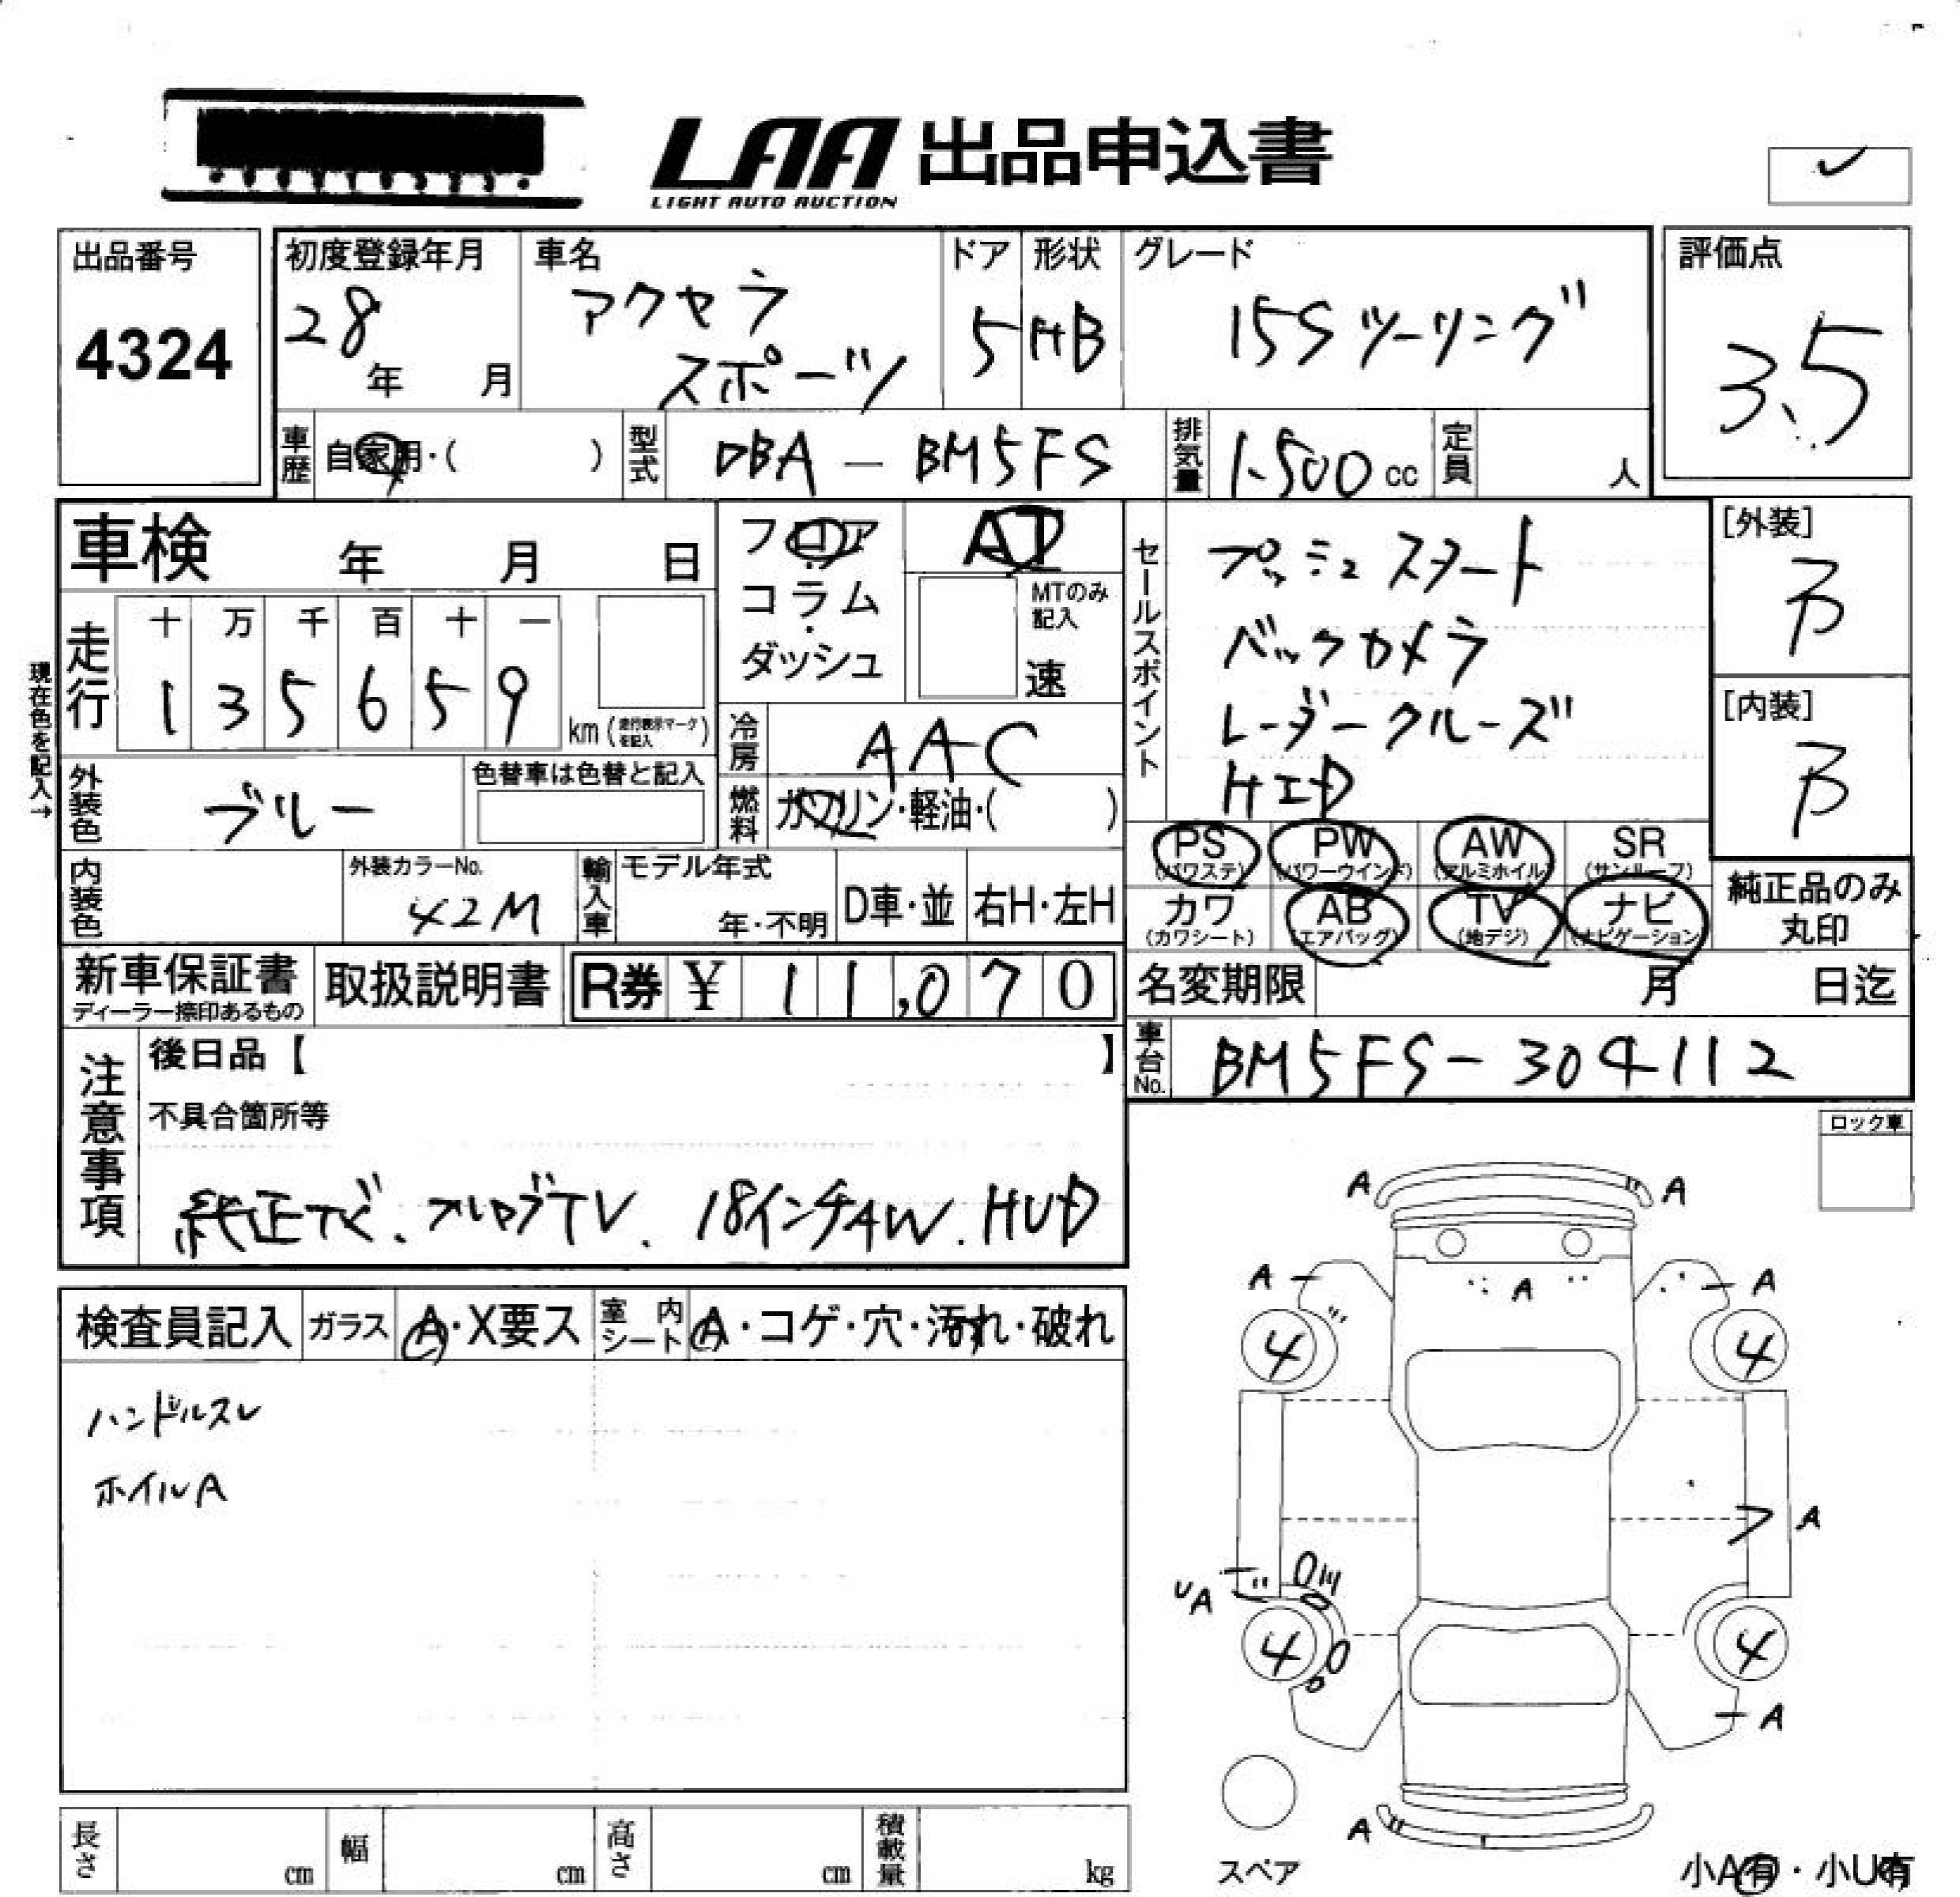 LAA 出品申込書
LIGHT AUTO AUCTION
出品番号
4324
初度登録年月
28年 月
車名
アクセラ
スポーツ
ドア
5
形状
HB
グレード
15Sツーリング
評価点
3.5
車歴
自家用・( )
型式
DBA-BM5FS
排気量
1.500cc
定員
人
車検 年 月 日
フロア
コラム
・
ダッシュ
AT
MTのみ
記入
速
セールスポイント
プッシュスタート
バックカメラ
レーダークルーズ
HID
[外装]
B
[内装]
B
現在色を記入→
走行
十 万 千 百 十 一
1 3 5 6 5 9
km (走行表示マークを記入)
冷房
AAC
外装色
ブルー
色替車は色替と記入
燃料
ガソリン・軽油・( )
PS
(パワステ)
PW
(パワーウインド)
AW
(アルミホイル)
SR
(サンルーフ)
内装色
外装カラーNo.
42M
輸入車
モデル年式
年・不明
D車・並
右H・左H
カワ
(カワシート)
AB
(エアバッグ)
TV
(地デジ)
ナビ
(ナビゲーション)
純正品のみ
丸印
新車保証書
ディーラー捺印あるもの
取扱説明書
R券 ¥ 11,070
名変期限 月 日迄
車台No.
BM5FS-304112
注意事項
後日品【 】
不具合箇所等
純正ナビ、フルセグTV、18インチAW、HUD
ロック車
検査員記入
ガラス
A・X要ス
室内シート
A・コゲ・穴・汚れ・破れ
ハンドルスレ
ホイルA
A A
A A A
4 4
A
UA
4 4
A
A
スペア
小A有・小U有
長さ cm
幅 cm
高さ cm
積載量 kg